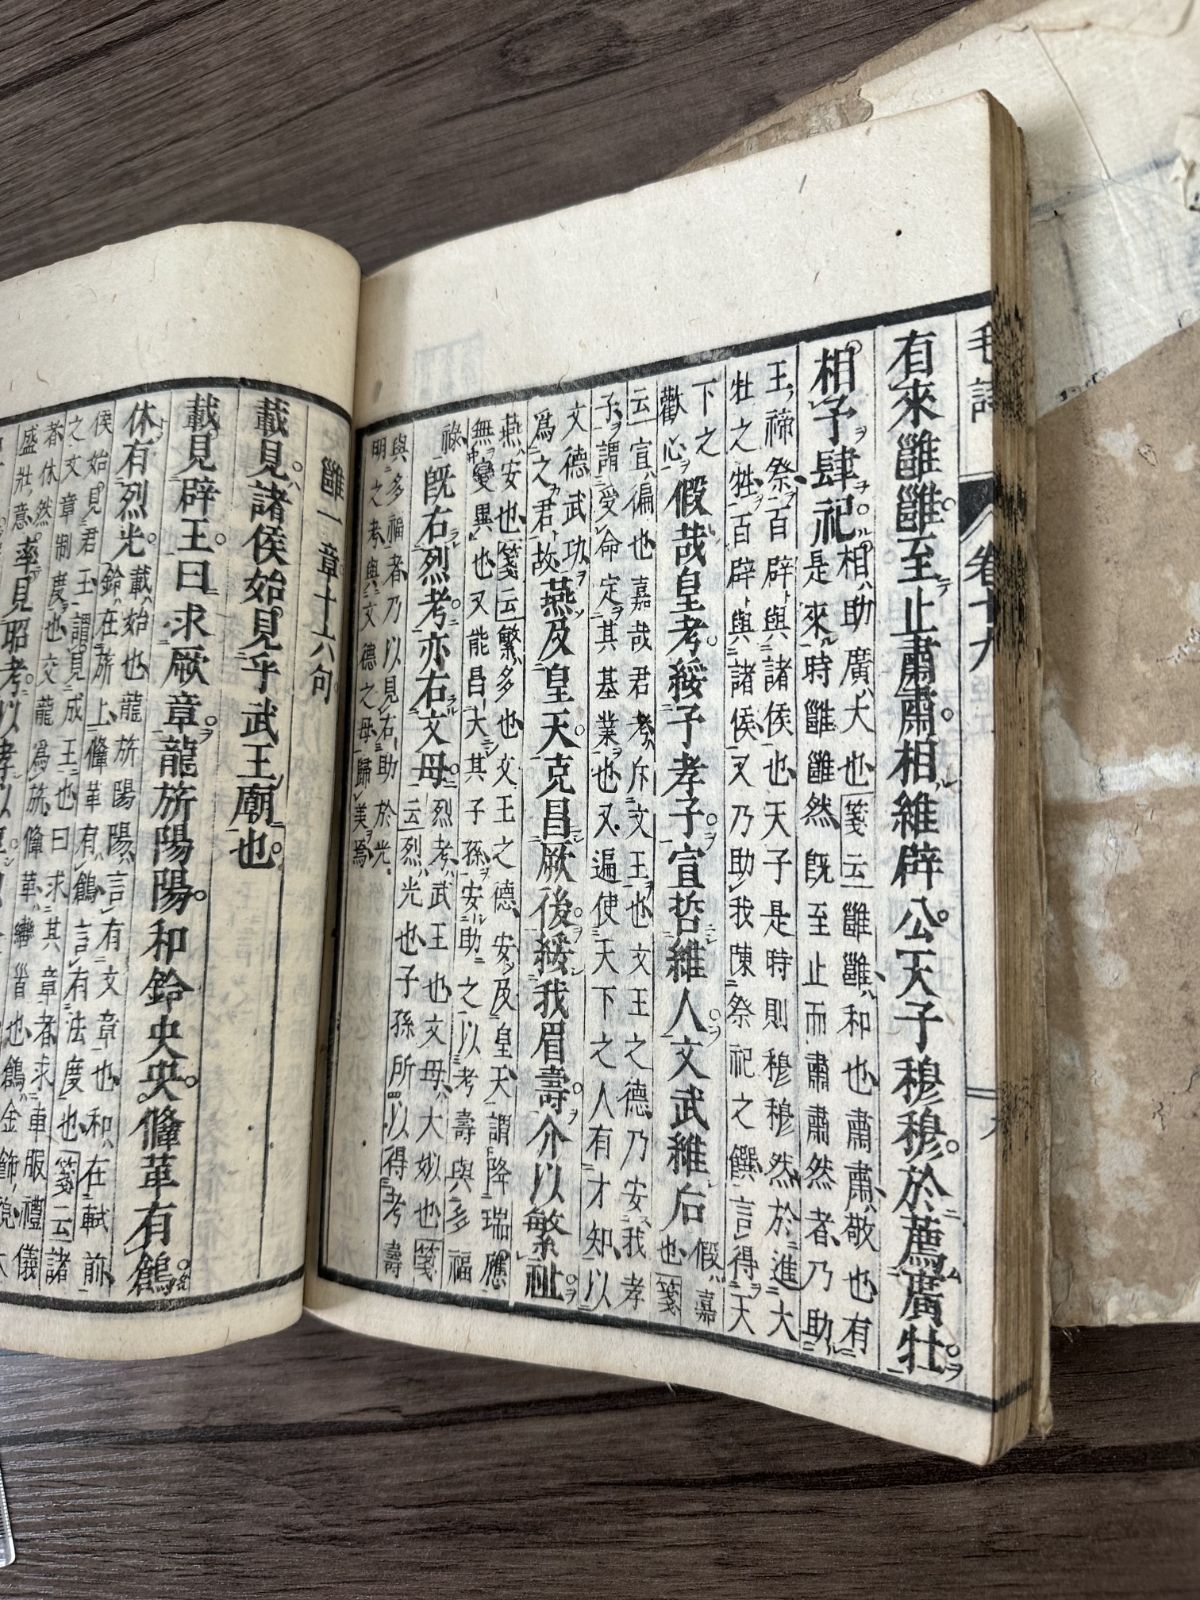 毛詩 卷十九 九
有來雝雝至止肅肅相維辟公天子穆穆於薦廣牡
相予肆祀
相助廣大也箋云雝雝和也肅肅敬也有
是來時雝雝然既至止而肅肅然者乃助
王禘祭百辟與諸侯也天子是時則穆穆然於進大
牡之牲百辟與諸侯又乃助我陳祭祀之饌言得天
下之
歡心
假哉皇考綏予孝子宣哲維人文武維后
假嘉
也箋
云宣徧也嘉哉君考斥文王也文王之德乃安我孝
子謂受命定其基業也又遍使天下之人有才知以
文德武功
爲之君故
燕及皇天克昌厥後綏我眉壽介以繁祉
燕安也箋云繁多也文王之德安及皇天謂降瑞應
無變異也又能昌大其子孫安助之以考壽與多福
祿
既右烈考亦右文母
烈考武王也文母大姒也箋
云烈光也子孫所以得考壽
與多福者乃以見右助於光
明之考與文德之母歸美焉
雝一章十六句
載見諸侯始見乎武王廟也
載見辟王曰求厥章龍旂陽陽和鈴央央鞗革有鶬
休有烈光
載始也龍旂陽陽言有文章也和在軾前
鈴在旂上鞗革有鶬言有法度也箋云諸
侯始見君王謂見成王也曰求其章者求車服禮儀
之文章制度也交龍爲旂鞗革轡首也鶬金飾貌
者休然
盛壯意
率見昭考以孝以